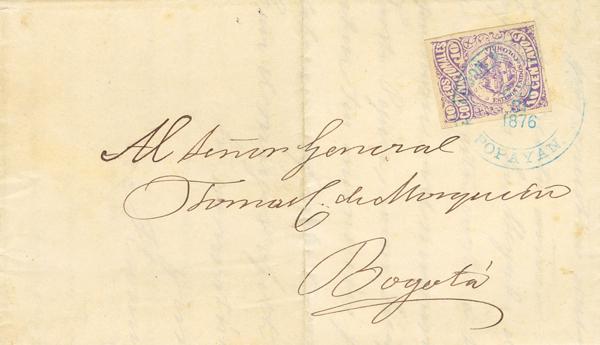 CORREOS NACIONALES
1876
POPAYAN
Al Señor General
Tomas C. de Mosquera
Bogotá